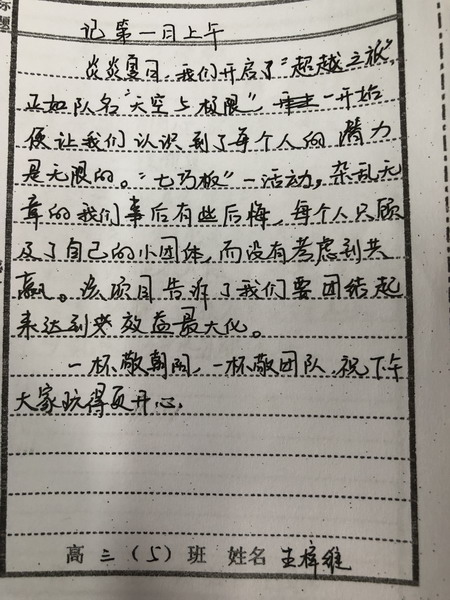 标题
记第一日上午
炎炎夏日，我们开启了“超越之旅”，
正如队名“天空与极限”，一开始
便让我们认识到了每个人的潜力
是无限的。“七巧板”一活动，杂乱无
章的我们事后有些后悔，每个人只顾
及了自己的小团体，而没有考虑到共
赢。该项目告诉了我们要团结起
来达到效益最大化。
一杯敬朝阳，一杯敬团队，祝下午
大家玩得更开心。
高三（5）班 姓名 王梓维